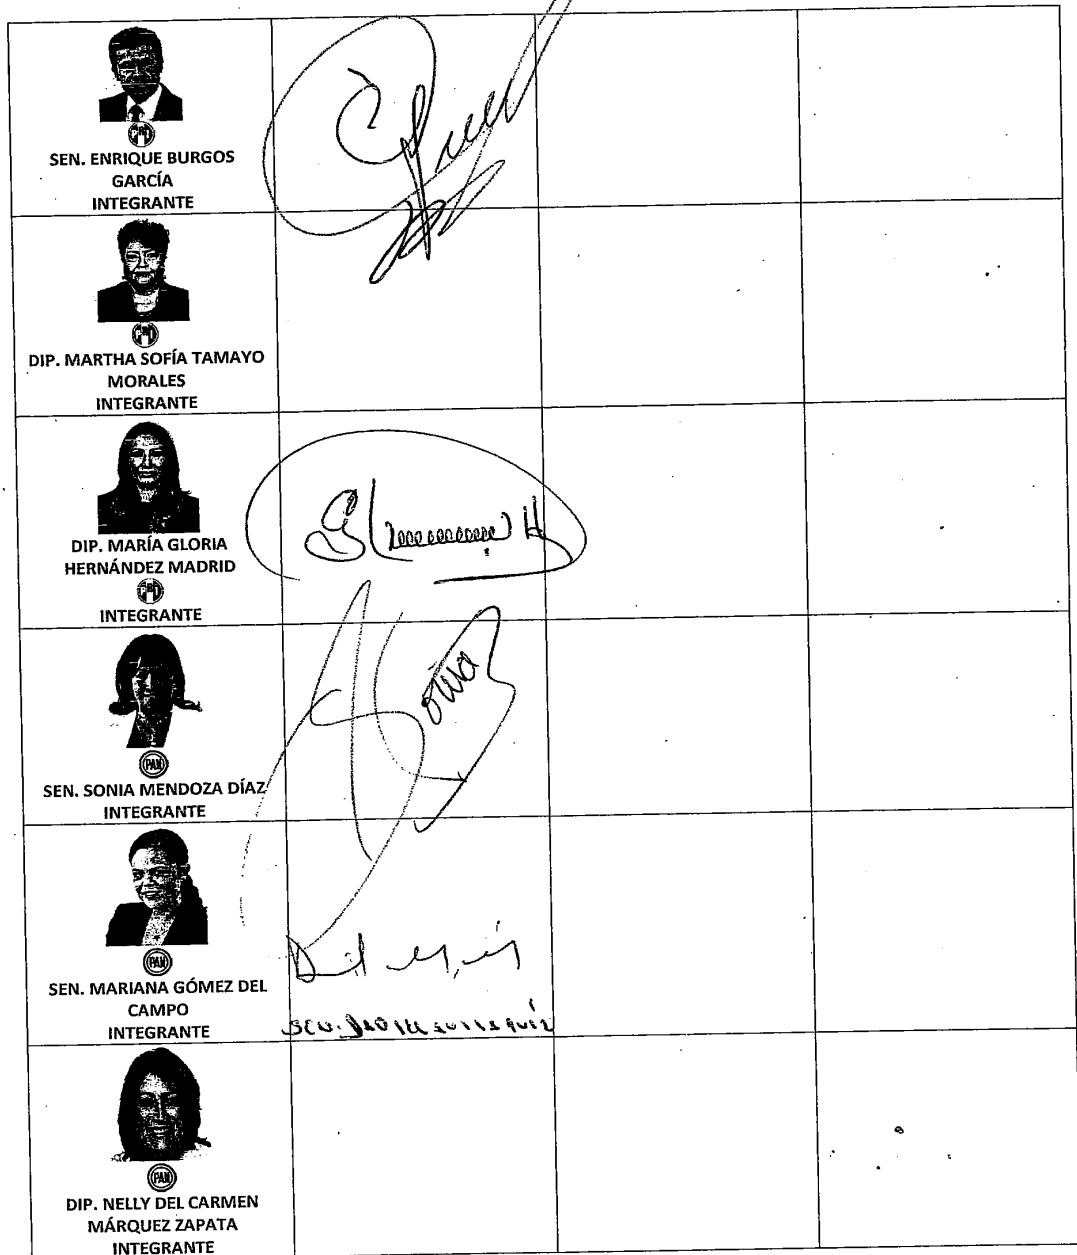 PRI
SEN. ENRIQUE BURGOS
GARCÍA
INTEGRANTE
PRI
DIP. MARTHA SOFÍA TAMAYO
MORALES
INTEGRANTE
DIP. MARÍA GLORIA
HERNÁNDEZ MADRID
PRI
INTEGRANTE
PAN
SEN. SONIA MENDOZA DÍAZ
INTEGRANTE
PAN
SEN. MARIANA GÓMEZ DEL
CAMPO
INTEGRANTE
SEN.
PAN
DIP. NELLY DEL CARMEN
MÁRQUEZ ZAPATA
INTEGRANTE